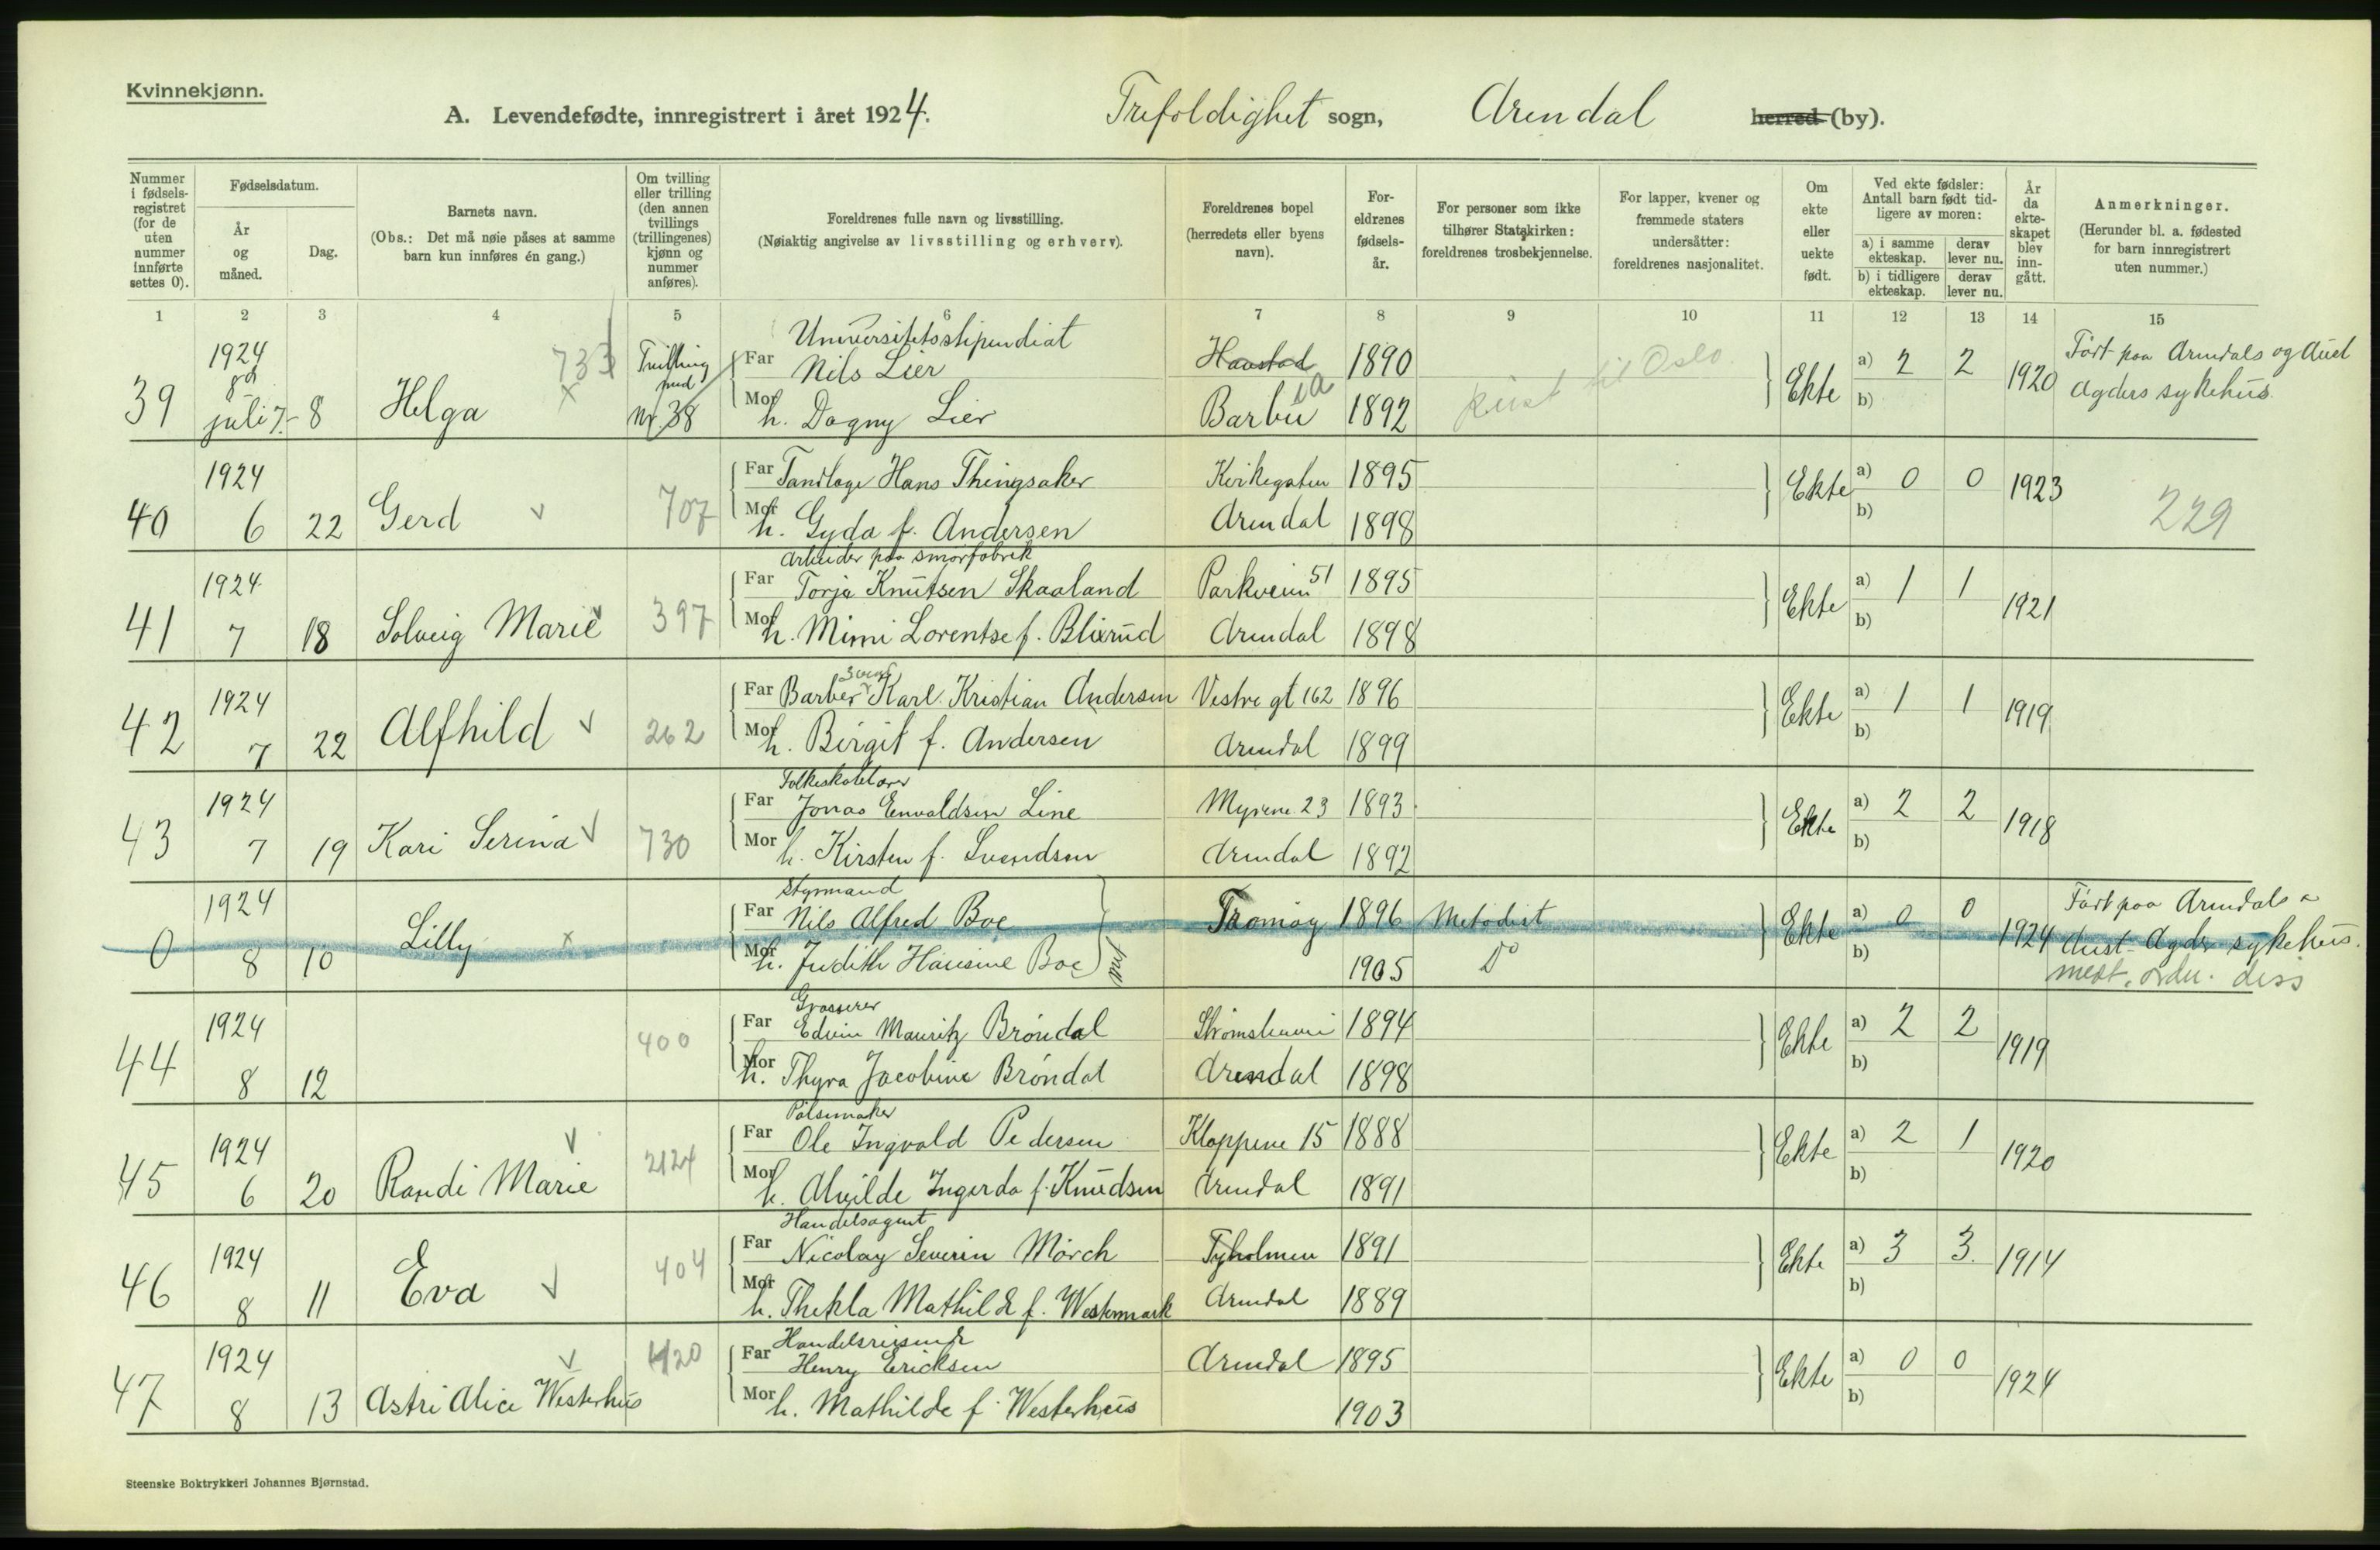 Kvinnekjønn.
A. Levendefødte, innregistrert i året 1924. Trefoldighet sogn, Arendal herred (by).
Nummer i fødsels-registret (for de uten nummer innførte settes 0).
Fødselsdatum.
År og måned.
Dag.
Barnets navn.
(Obs.: Det må nøie påses at samme barn kun innføres én gang.)
Om tvilling eller trilling (den annen tvillings (trillingenes) kjønn og nummer anføres).
Foreldrenes fulle navn og livsstilling.
(Nøiaktig angivelse av livsstilling og erhverv).
Foreldrenes bopel (herredets eller byens navn).
For-eldrenes fødsels-år.
For personer som ikke tilhører Statskirken: foreldrenes trosbekjennelse.
For lapper, kvener og fremmede staters undersåtter: foreldrenes nasjonalitet.
Om ekte eller uekte født.
Ved ekte fødsler: Antall barn født tid-ligere av moren:
a) i samme ekteskap. derav lever nu.
b) i tidligere ekteskap. derav lever nu.
År da ekte-skapet blev inn-gått.
Anmerkninger.
(Herunder bl. a. fødested for barn innregistrert uten nummer.)
1 2 3 4 5 6 7 8 9 10 11 12 13 14 15
Universitetsstipendiat
39 1924 juli 7 8 Helga 733 x Tvilling med nr. 38 Far Nils Lier 1890 Ekte a) 2 2 1920 Født paa Arendals og Aust
Mor h. Dagny Lier Barbu 1892 til Oslo b) Agders sykehus.
40 1924 6 22 Gerd v 707 Far Tandlæge Hans Thingsaker Kirkegaten 1895 Ekte a) 0 0 1923 229
Mor h. Gyda f. Andersen Arendal 1898 b)
Arbeider paa smørfabrik
41 1924 7 18 Solveig Marie v 397 Far Torje Knutsen Skaaland Parkveien 51 1895 Ekte a) 1 1 1921
Mor h. Mimi Lorentse f. Blixrud Arendal 1898 b)
42 1924 7 22 Alfhild v 262 Far Barbersvend Karl Kristian Andersen Vestre gt 162 1896 Ekte a) 1 1 1919
Mor h. Birgit f. Andersen Arendal 1899 b)
Folkeskolelærer
43 1924 7 19 Kari Serina v 730 Far Jonas Envaldsen Line Myrene 23 1893 Ekte a) 2 2 1918
Mor h. Kirsten f. Svendsen Arendal 1892 b)
Styrmand
0 1924 8 10 Lilly x Far Nils Alfred Boe Tromøy 1896 Metodist Ekte a) 0 0 1924 Født paa Arendals
Mor h. Judith Hansine Boe 1905 Do b) Aust-Agder sykehus.
diss
Grosserer
44 1924 8 12 400 Far Edvin Mauritz Brøndal 1894 Ekte a) 2 2 1919
Mor h. Thyra Jacobine Brøndal Arendal 1898 b)
Pølsemaker
45 1924 6 20 Randi Marie v 2124 Far Ole Ingvald Pedersen Kloppene 15 1888 Ekte a) 2 1 1920
Mor h. Alvilde Ingerda f. Knudsen Arendal 1891 b)
Handelsagent
46 1924 8 11 Eva v 404 Far Nicolay Severin Mørch Tyholmen 1891 Ekte a) 3 3 1914
Mor h. Thekla Mathilde f. Westermark Arendal 1889 b)
Handelsreisende
47 1924 8 13 Astri Alice Westerhus v Far Henry Ericksen Arendal 1895 Ekte a) 0 0 1924
Mor h. Mathilde f. Westerhus 1903 b)
Steenske Boktrykkeri Johannes Bjørnstad.